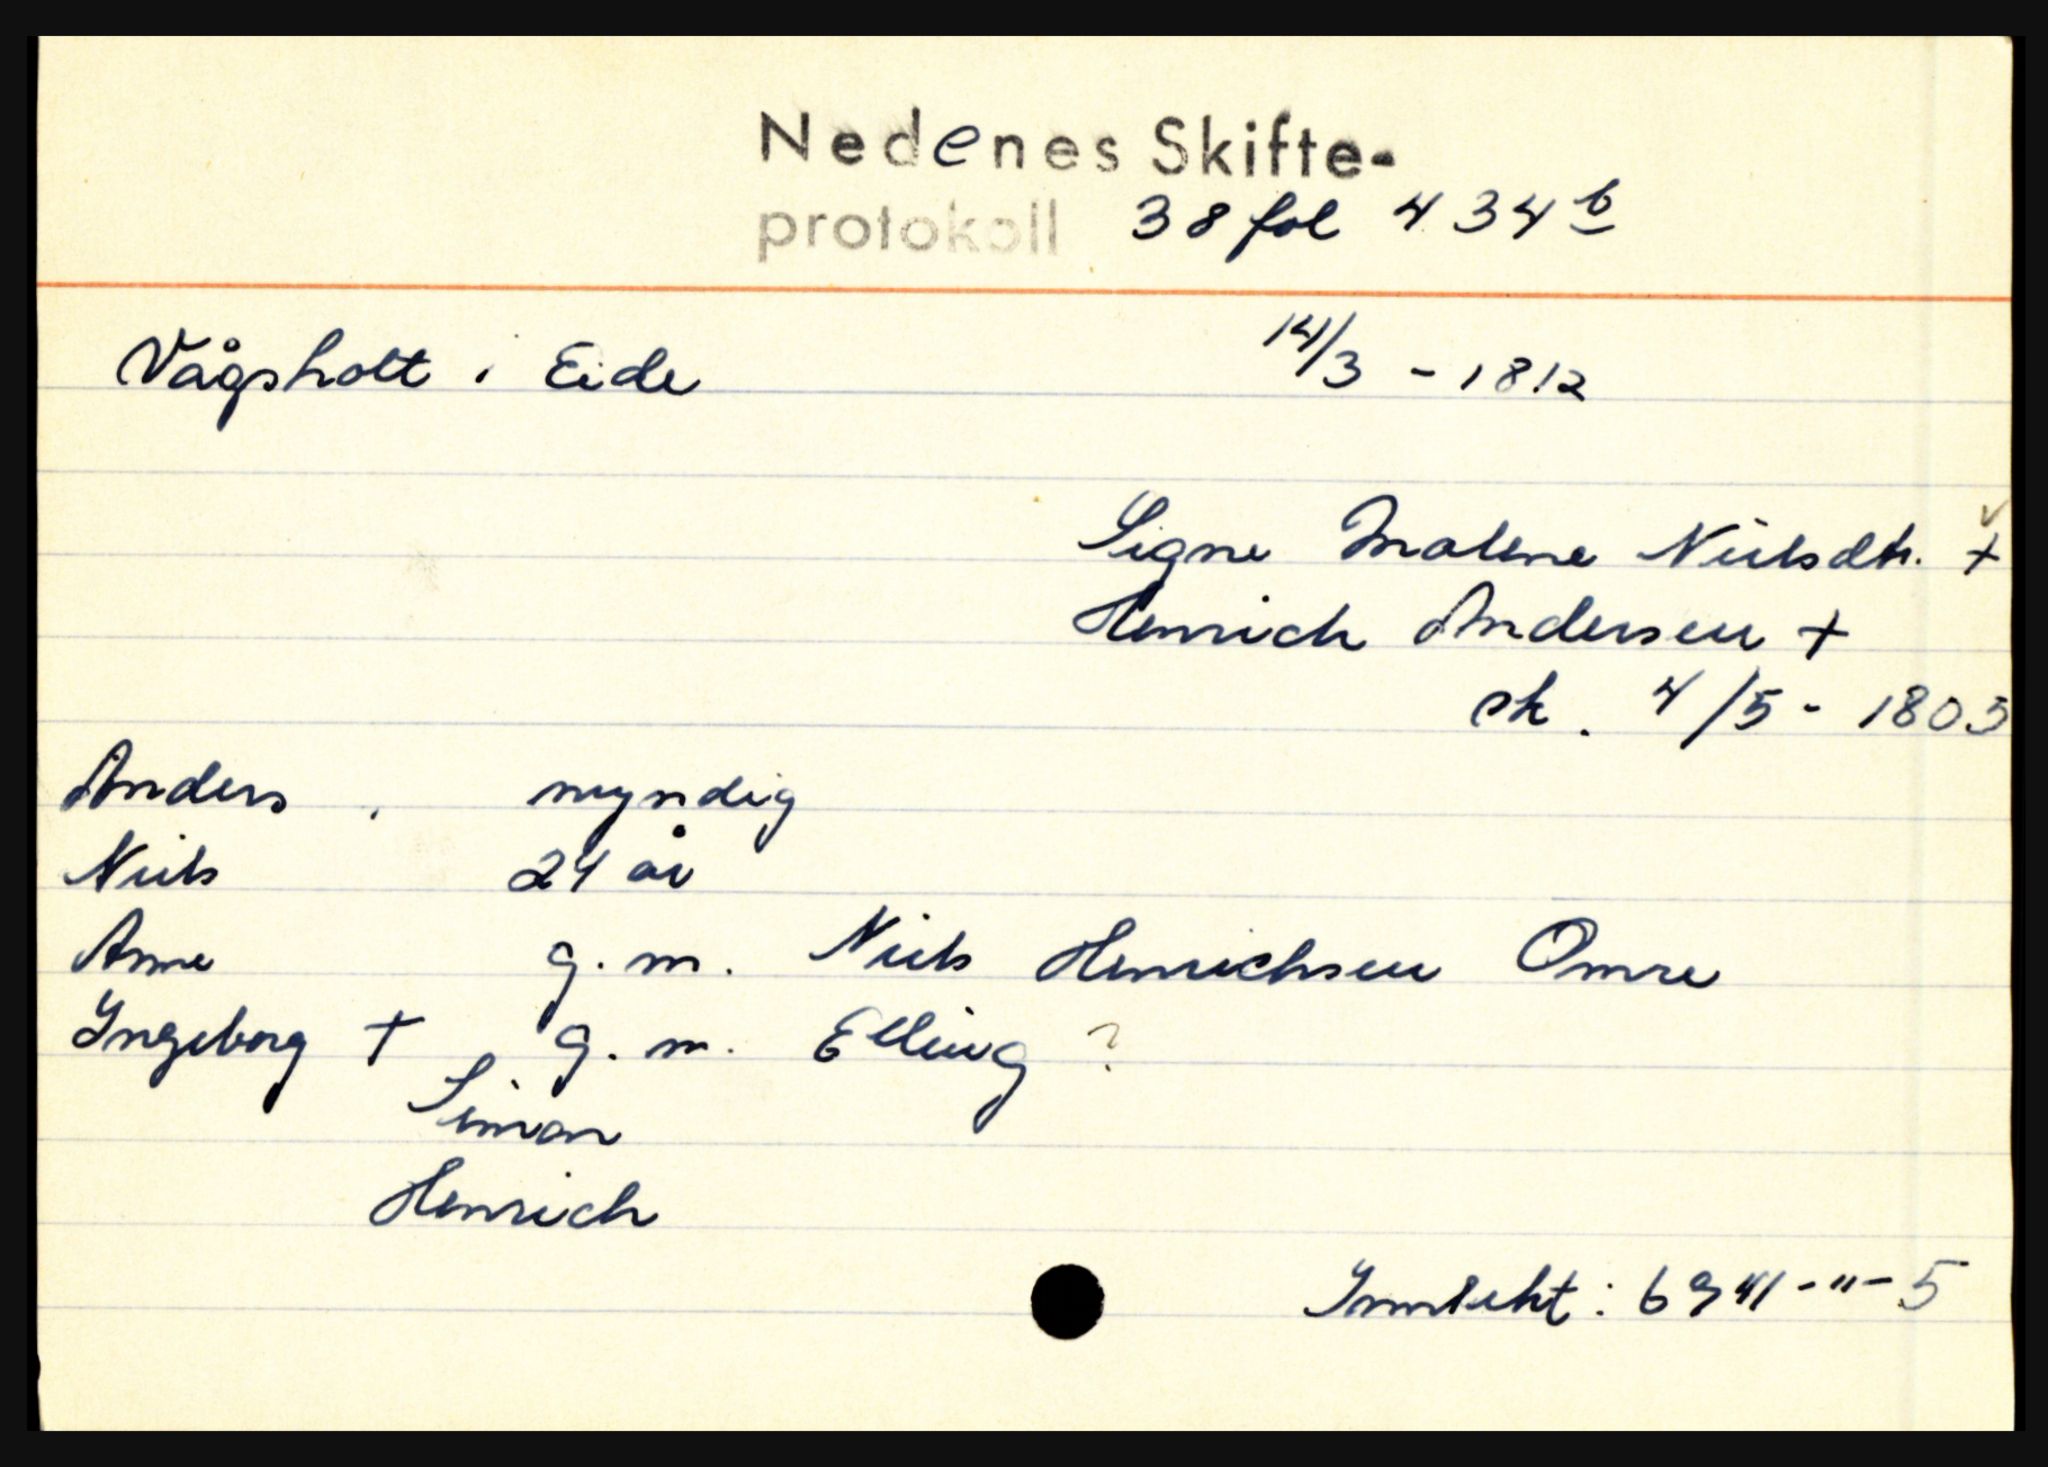 Nedenes Skifte-
protokoll 38 fol 434 b
Vågsholt i Eide 14/3 - 1812
Signe Malene Nielsdtr. +
Henrich Andersen +
sk. 4/5 - 1803
Anders, myndig
Niels 24 år
Anne g. m. Niels Henrichsen Omre
Ingeborg + g. m. Elling ?
Simon
Henrich
Inntekt: 6941-"-5